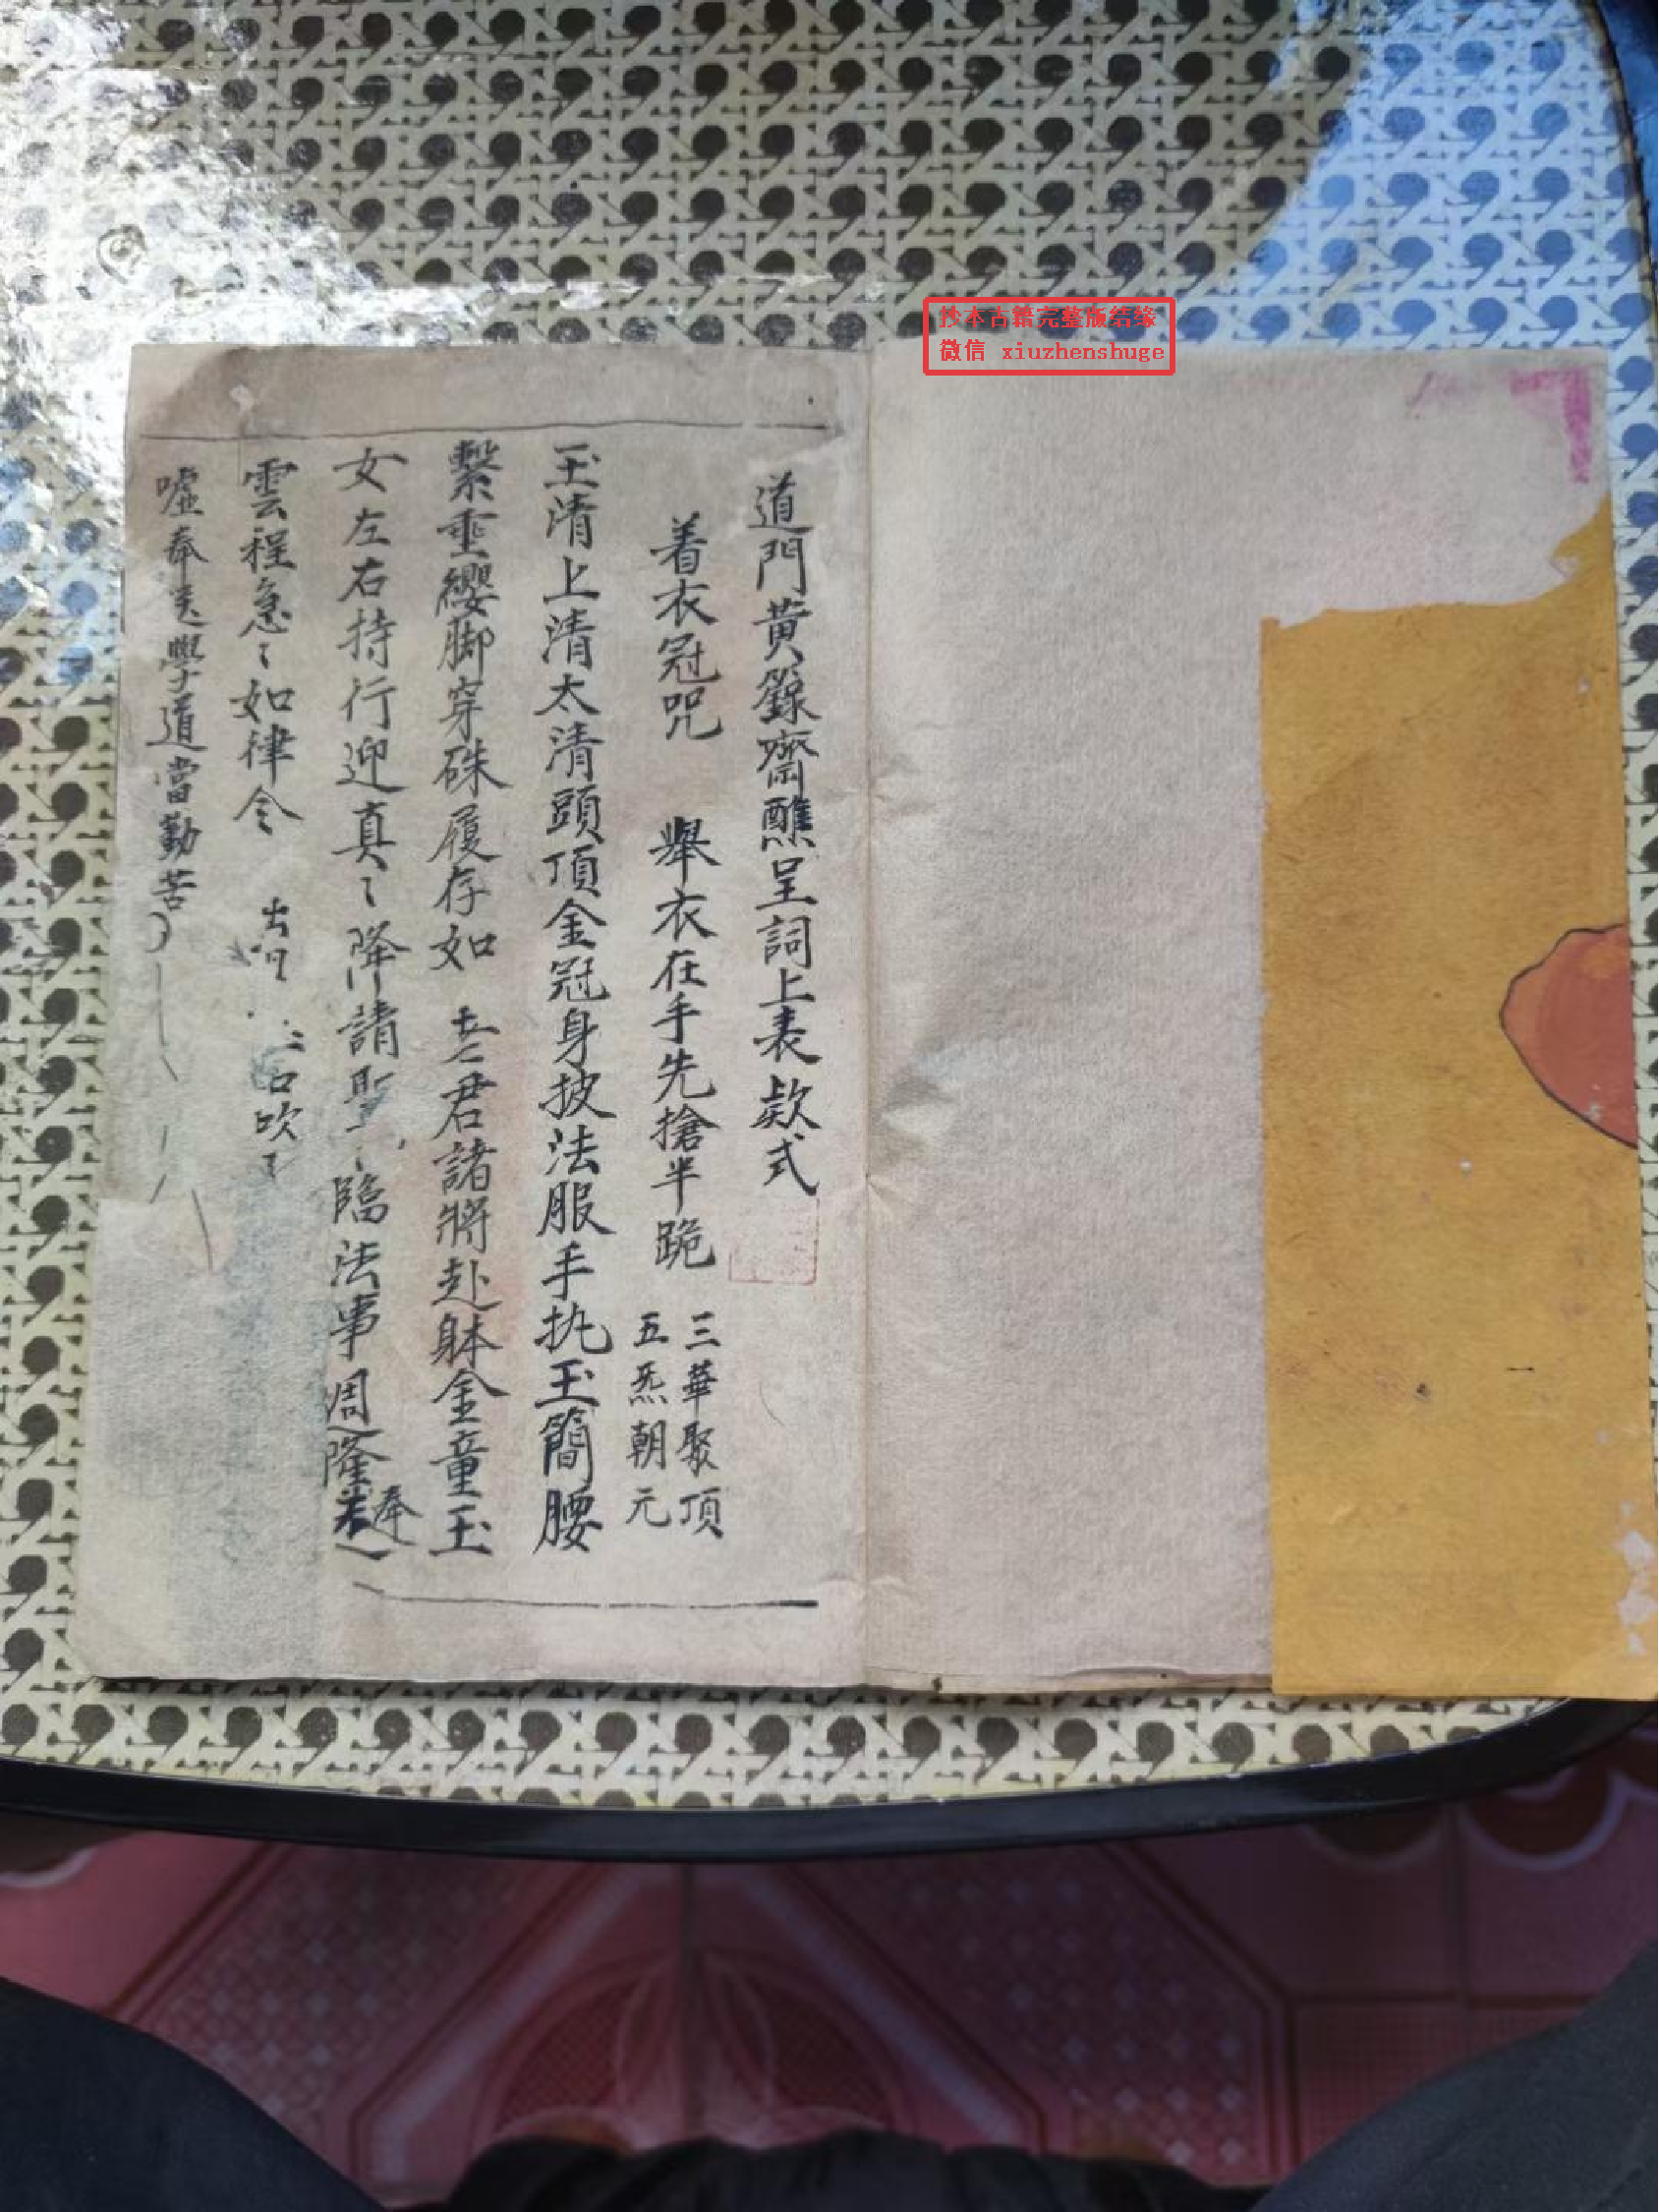 抄本古籍完整版结缘
微信 xiuzhenshuge
道門黄籙齋醮呈詞上表欵式
着衣冠咒 舉衣在手先搶半跪 三華聚頂
五炁朝元
玉清上清太清頭頂金冠身披法服手执玉簡腰
繫垂纓脚穿硃履存如 君諸將赴躰金童玉
女左右持行迎真〻降請聖 臨法事周隆奉
雲程急〻如律令 吹
嘘奉 學道當勤苦